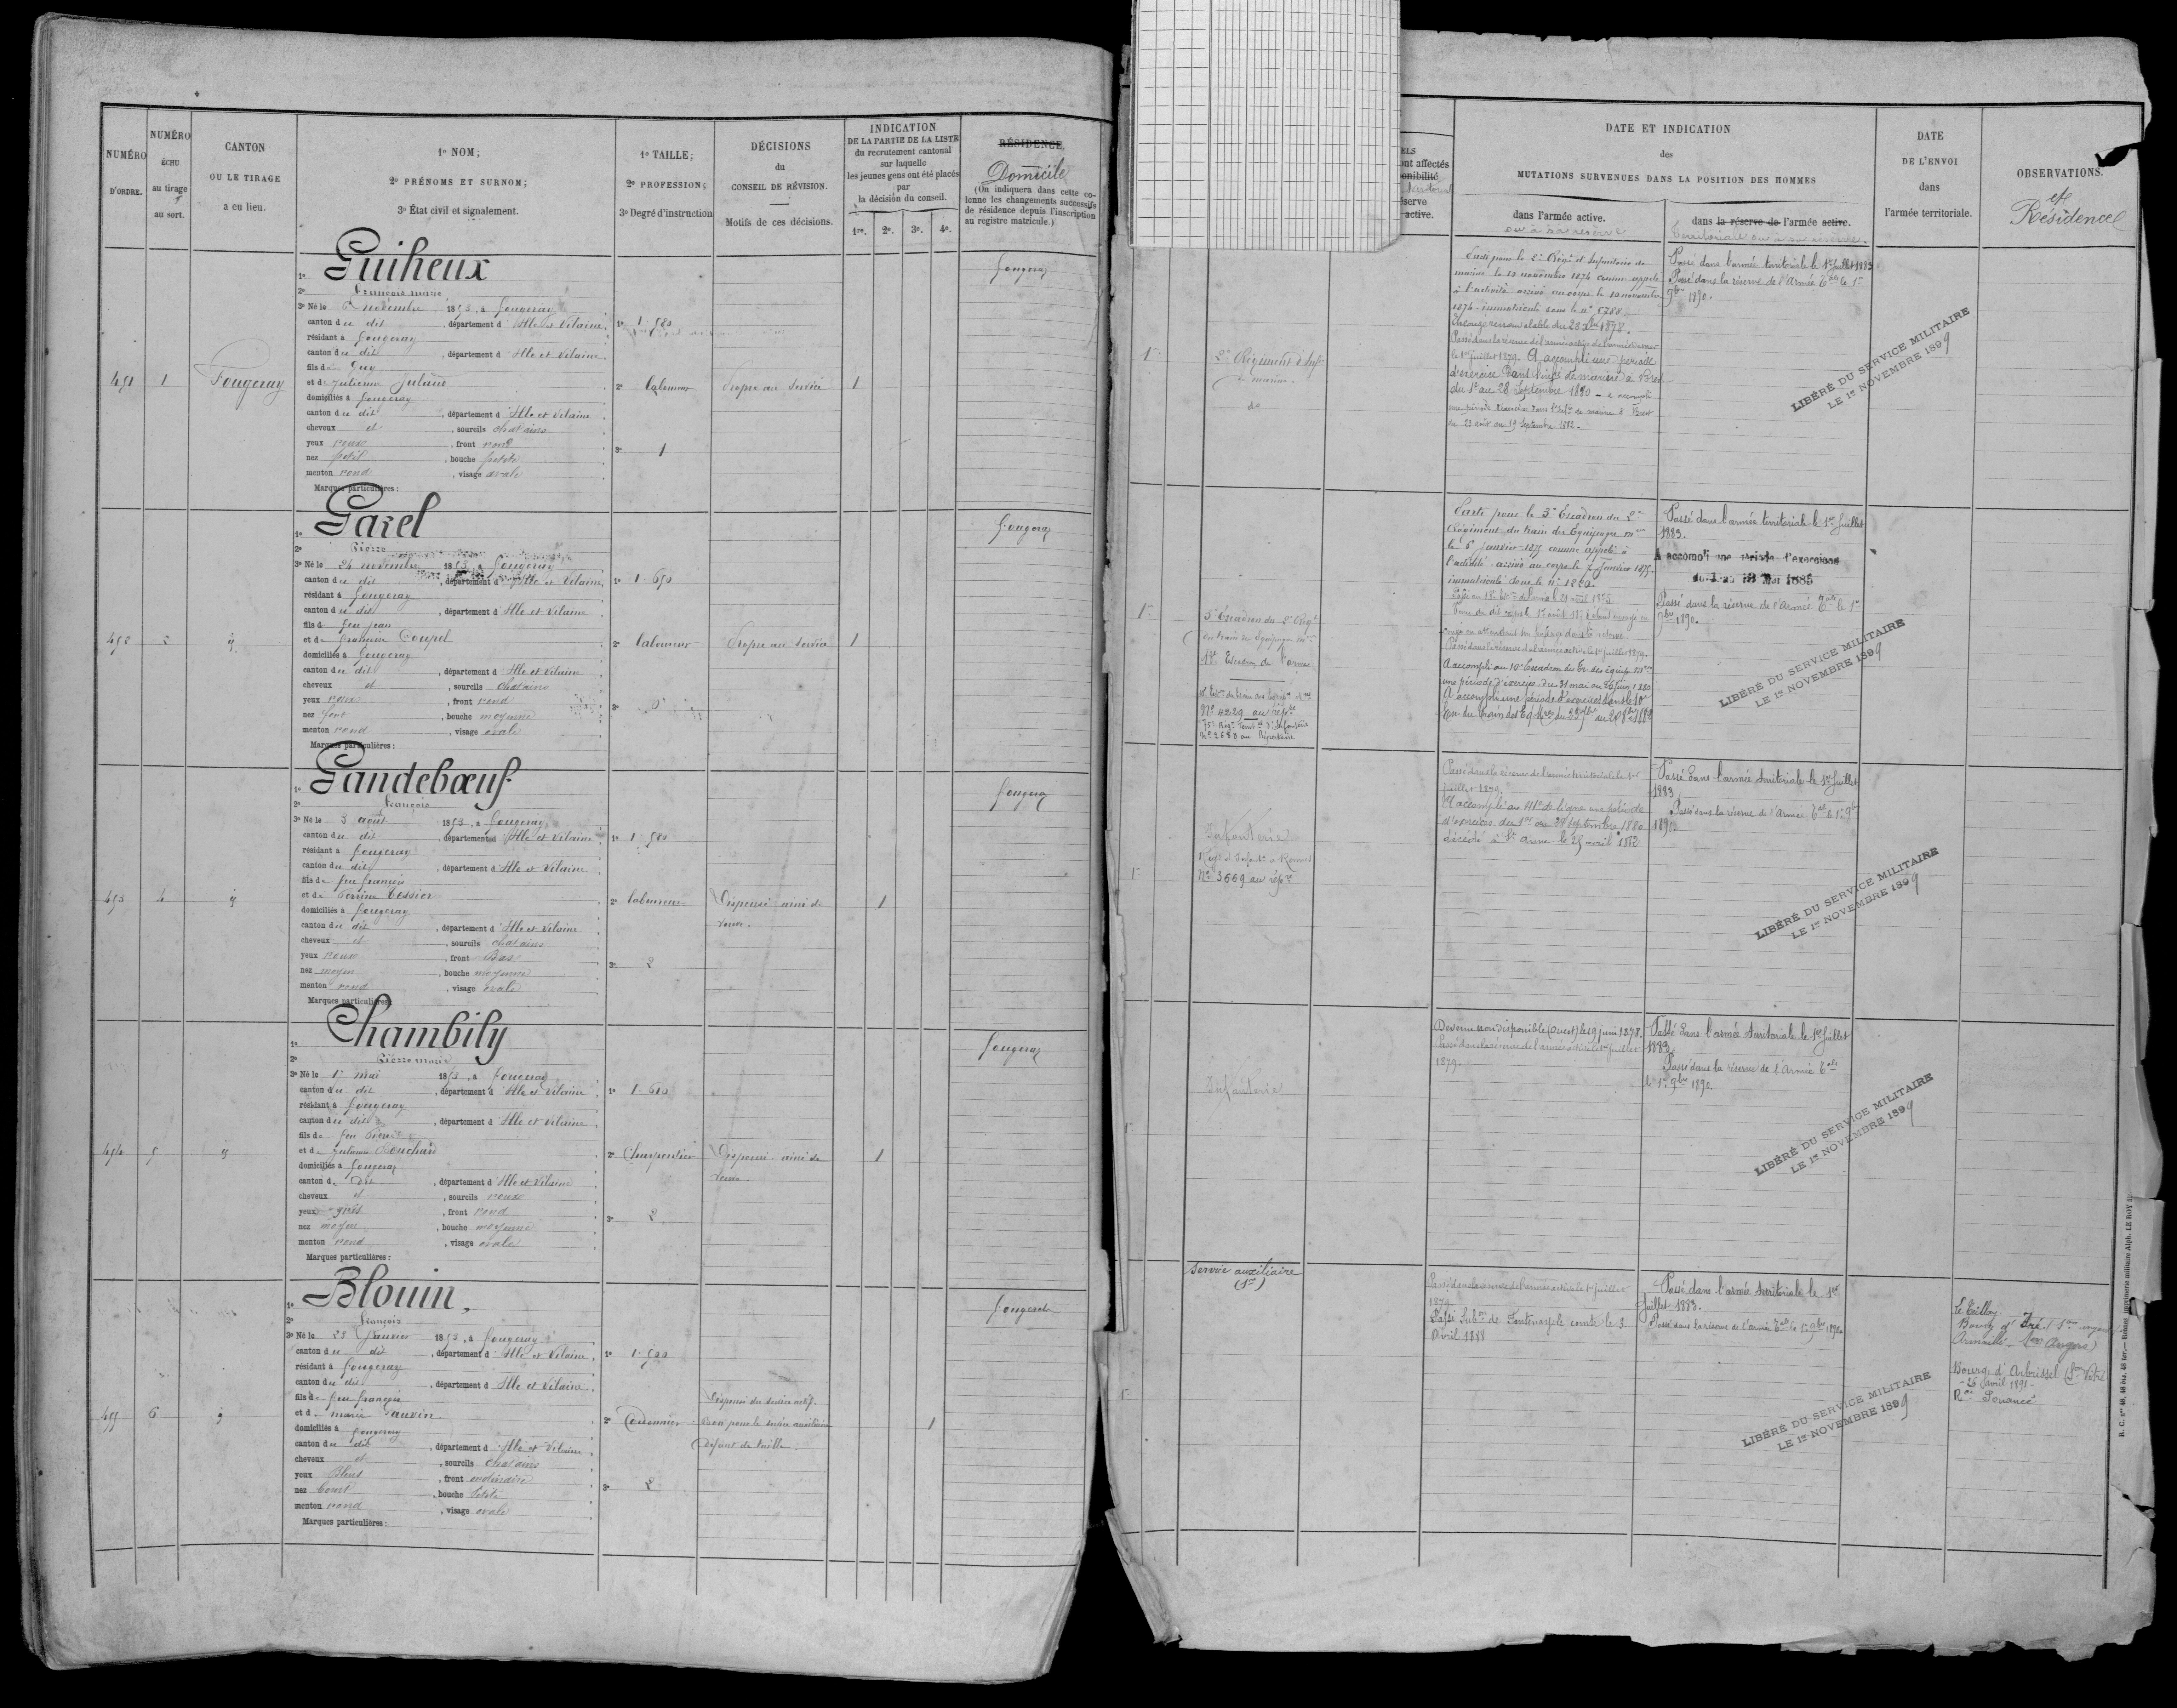 NUMÉRO
D'ORDRE.
NUMÉRO
ÉCHU
au tirage
au sort.
CANTON
OU LE TIRAGE
a eu lieu.
1º NOM;
2º PRÉNOMS ET SURNOM;
3º État civil et signalement.
1º TAILLE;
2º PROFESSION;
3º Degré d'instruction
DÉCISIONS
du
CONSEIL DE RÉVISION.
Motifs de ces décisions.
INDICATION
DE LA PARTIE DE LA LISTE
du recrutement cantonal
sur laquelle
les jeunes gens ont été placés
par
la décision du conseil.
1re. 2e. 3e. 4e.
RÉSIDENCE
Domicile
(On indiquera dans cette co-
lonne les changements successifs
de résidence depuis l'inscription
au registre matricule.)
451 1 Fougeray
1º Guiheux
2º François marie
3º Né le 6 novembre 1853, à fougeray
canton du dit, département d'Ille et Vilaine
résidant à fougeray
canton du dit, département d'Ille et Vilaine
fils de Guy
et de Julienne
domiciliés à fougeray
canton du dit, département d'Ille et Vilaine
cheveux et, sourcils chatains
yeux roux, front rond
nez petit, bouche petite
menton rond, visage ovale
Marques particulières :
1º 1.580
2º laboureur
3º 1
Propre au service
1
fougeray
452 2 id
1º Garel
2º Pierre
3º Né le 24 novembre 1853, à fougeray
canton du dit, département d'Ille et Vilaine
résidant à fougeray
canton du dit, département d'Ille et Vilaine
fils de feu jean
et de françoise Coupel
domiciliés à fougeray
canton du dit, département d'Ille et Vilaine
cheveux et, sourcils chatains
yeux roux, front rond
nez fort, bouche moyenne
menton rond, visage ovale
Marques particulières :
1º 1.650
2º laboureur
3º 0
Propre au service
1
fougeray
453 4 id
1º Gandebœuf
2º françois
3º Né le 3 août 1853, à fougeray
canton du dit, département d'Ille et Vilaine
résidant à fougeray
canton du dit, département d'Ille et Vilaine
fils de feu françois
et de Perrine Tessier
domiciliés à fougeray
canton du dit, département d'Ille et Vilaine
cheveux et, sourcils chatains
yeux roux, front Bas
nez moyen, bouche moyenne
menton rond, visage ovale
Marques particulières :
1º 1.580
2º laboureur
3º 2
Dispensé ainé de
veuve.
1
fougeray
454 5 id
1º Chambily
2º Pierre marie
3º Né le 1er mai 1853, à fougeray
canton du dit, département d'Ille et Vilaine
résidant à fougeray
canton du dit, département d'Ille et Vilaine
fils de feu Pierre
et de Julienne Bouchard
domiciliés à fougeray
canton d. dit, département d'Ille et Vilaine
cheveux et, sourcils roux
yeux gris, front rond
nez moyen, bouche moyenne
menton rond, visage ovale
Marques particulières :
1º 1.610
2º Charpentier
3º 2
Dispensé ainé de
veuve.
1
fougeray
455 6 id
1º Blouin,
2º françois
3º Né le 23 Janvier 1853, à fougeray
canton du dit, département d'Ille et Vilaine
résidant à fougeray
canton du dit, département d'Ille et Vilaine
fils de feu françois
et de marie
domiciliés à fougeray
canton du dit, département d'Ille et Vilaine
cheveux et, sourcils chatains
yeux Bleus, front ordinaire
nez court, bouche Petite
menton rond, visage ovale
Marques particulières :
1º 1.500
2º Cordonnier
3º 2
Dispensé du service actif.
Bon pour le service auxiliaire
défaut de taille.
1
fougeray
ELS
ont affectés
onibilité
serve
active.
DATE ET INDICATION
des
MUTATIONS SURVENUES DANS LA POSITION DES HOMMES
dans l'armée active.
ou sa réserve
dans la réserve de l'armée active.
territoriale ou sa réserve.
DATE
DE L'ENVOI
dans
l'armée territoriale.
OBSERVATIONS.
et
Résidence
2e Régiment d'Infie
de marine.
Parti pour le 2e Régt d'Infanterie de
marine le 10 novembre 1874 comme appelé
à l'activité arrivé au corps le 10 novembre
1874 immatriculé sous le nº 5788.
En congé renouvelable du 28 1878.
Passé dans la réserve de l'armée active
le 1er juillet 1879. A accompli une période
d'exercice dans l'infie de marine à Brest
du 1er au 28 Septembre 1880 - a accompli
une période d'exercice dans l'infie de marine à Brest
du 23 août au 19 Septembre 1882.
Passé dans l'armée territoriale le 1er Juillet 1883
Passé dans la réserve de l'Armée Tale le 1er
9bre 1890.
LIBÉRÉ DU SERVICE MILITAIRE
LE 1er NOVEMBRE 1899
3e Escadron du 2e Régt
du train des équipages mres
Nº 4229 au répre
75e Régt Territal d'Infanterie
Nº 2683 au Répertoire
Parti pour le 3e Escadron du 2e
Régiment du train des Equipages mres
le 6 janvier 1875 comme appelé à
l'activité arrivé au corps le 7 Janvier 1875
immatriculé sous le nº 1220.
Passé dans la réserve de l'armée active le 1er juillet 1879.
A accompli au 10e Escadron du Tr. des équip. mres
une période d'exercice du 31 mai au 26 juin 1880
A accompli une période d'exercices dans le 10e
Passé dans l'armée territoriale le 1er Juillet
1883.
A accompli une période d'exercices
Mai 1885
Passé dans la réserve de l'Armée Tale le 1er
9bre 1890.
LIBÉRÉ DU SERVICE MILITAIRE
LE 1er NOVEMBRE 1899
Infanterie
Régt d'Infantie à Rennes
Nº 3669 au répre
Passé dans la réserve de l'armée territoriale le 1er
juillet 1879.
A accompli au 41e de ligne une période
d'exercices du 1er au 28 septembre 1880
décédé à Ste Anne le 25 avril 1882
Passé dans l'armée territoriale le 1er Juillet
1883
Passé dans la réserve de l'Armée Tale le 1er 9bre
1890
LIBÉRÉ DU SERVICE MILITAIRE
LE 1er NOVEMBRE 1899
Infanterie
Devenu non disponible (Ouest) le 19 juin 1878.
Passé dans la réserve de l'armée active le 1er juillet
1879.
Passé dans l'armée territoriale le 1er Juillet
1883.
Passé dans la réserve de l'Armée Tale
le 1er 9bre 1890.
LIBÉRÉ DU SERVICE MILITAIRE
LE 1er NOVEMBRE 1899
Service auxiliaire
Passé dans la réserve de l'armée active le 1er juillet
1879.
Passé Subon de Fontenay le comte le 3
Avril 1888
Passé dans l'armée territoriale le 1er
Juillet 1883.
Passé dans la réserve de l'armée Tale le 1er 9bre 1890.
LIBÉRÉ DU SERVICE MILITAIRE
LE 1er NOVEMBRE 1899
Bourg d'
Armaillé Angers)
Bourg d'Arbrissel (Son Vitré
- 26 avril 1891 -
Pouancé